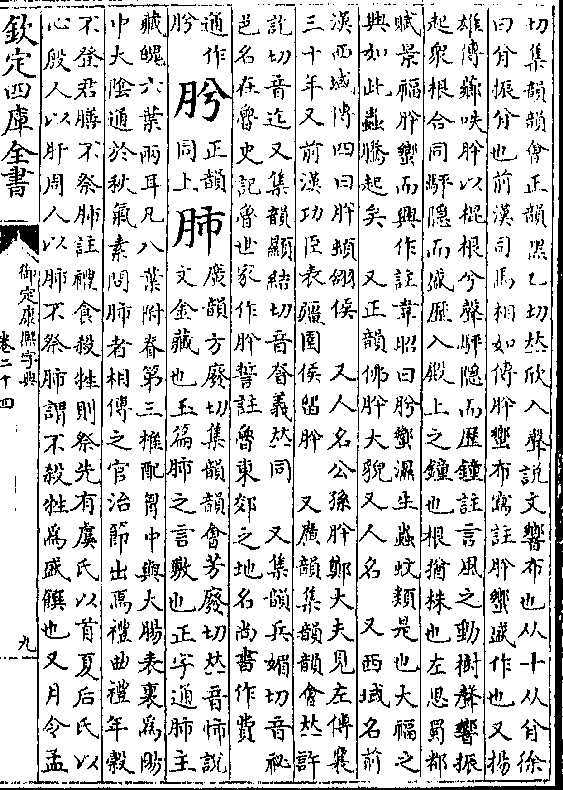 切集韻韻會正韻黑乙切𠀤欣入聲說文響布也从十从㕣徐
曰㕣振㕣也前漢司馬相如傳肸蠁布寫註肸蠁盛作也又揚
雄傳薌呹肸以棍根兮聲駍隱而歷鐘註言風之動樹聲響振
起衆根合同駍隱而盛歷入殿上之鐘也根猶株也左思蜀都
賦景福肸蠁而興作註韋昭曰肸蠁濕生蟲蚊類是也大福之
興如此蟲騰起矣 又正韻佛肸大貌又人名 又西域名前
漢西域傳四曰肸頓翎侯 又人名公孫肸鄭大夫見左傳襄
三十年又前漢功臣表疆圉侯留肸 又廣韻集韻韻會𠀤許
訖切音迄又集韻顯結切音㫼義𠀤同 又集韻兵媚切音祕
邑名在魯史記魯世家作肸誓註魯東郊之地名尚書作費
通作肸 肹 正韻同上 肺 廣韻方廢切集韻韻會芳廢切𠀤音怖說文金藏也玉篇肺之言敷也正字通肺主
藏魄六葉兩耳凡八葉附脊第三椎配胷中與大腸表裏爲陽
中大陰通於秋氣素問肺者相傅之官治節出焉禮曲禮年穀
不登君膳不祭肺註禮食殺牲則祭先有虞氏以首夏后氏以
心殷人以肝周人以肺不祭肺謂不殺牲爲盛饌也又月令孟
欽定四庫全書
御定康熙字典
卷二十四
九